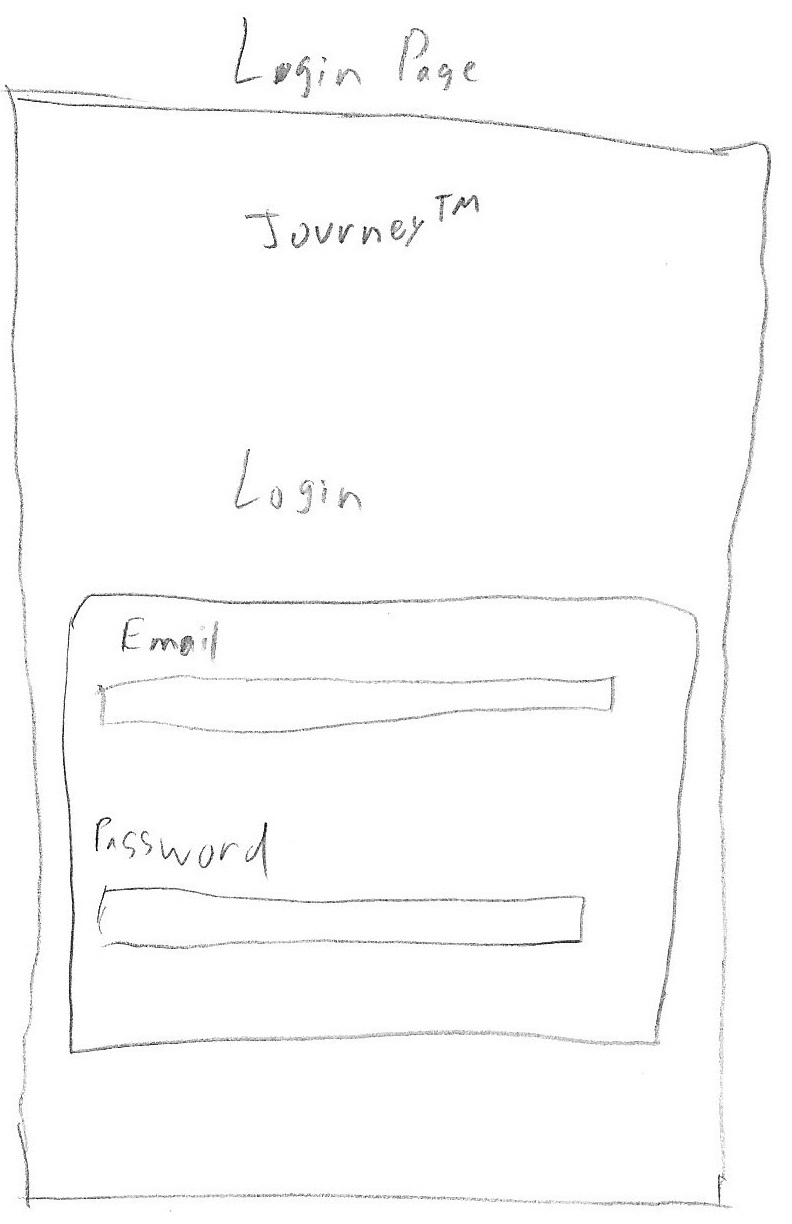 Login Page
Journey™
Login
Email
Password